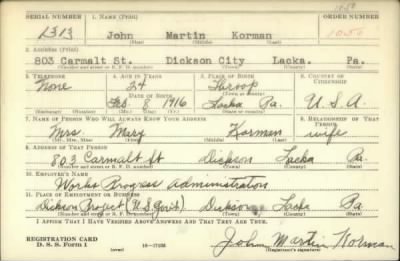 SERIAL NUMBER 1. NAME (Print) ORDER NUMBER
1313 John Martin Korman 1050
(First) (Middle) (Last)
2. ADDRESS (Print)
803 Carmalt St. Dickson City Lacka. Pa.
(Number and street or R. F. D. number) (Town) (County) (State)
3. TELEPHONE 4. AGE IN YEARS 5. PLACE OF BIRTH 6. COUNTRY OF CITIZENSHIP
None 24 Throop
DATE OF BIRTH (Town or county)
Feb 8 1916 Lacka Pa. U.S.A.
(Exchange) (Number) (Mo.) (Day) (Yr.) (State or country)
7. NAME OF PERSON WHO WILL ALWAYS KNOW YOUR ADDRESS 8. RELATIONSHIP OF THAT PERSON
Mrs Mary Korman wife
(Mr., Mrs., Miss) (First) (Middle) (Last)
9. ADDRESS OF THAT PERSON
803 Carmalt St Dickson Lacka Pa.
(Number and street or R. F. D. number) (Town) (County) (State)
10. EMPLOYER'S NAME
Works Progress Administration
11. PLACE OF EMPLOYMENT OR BUSINESS
Dickson Project (U.S. Gov't.) Dickson Lacka Pa.
(Number and street or R. F. D. number) (Town) (County) (State)
I AFFIRM THAT I HAVE VERIFIED ABOVE ANSWERS AND THAT THEY ARE TRUE.
REGISTRATION CARD
D. S. S. Form 1 (over) 16—17105 John Martin Korman
(Registrant's signature)